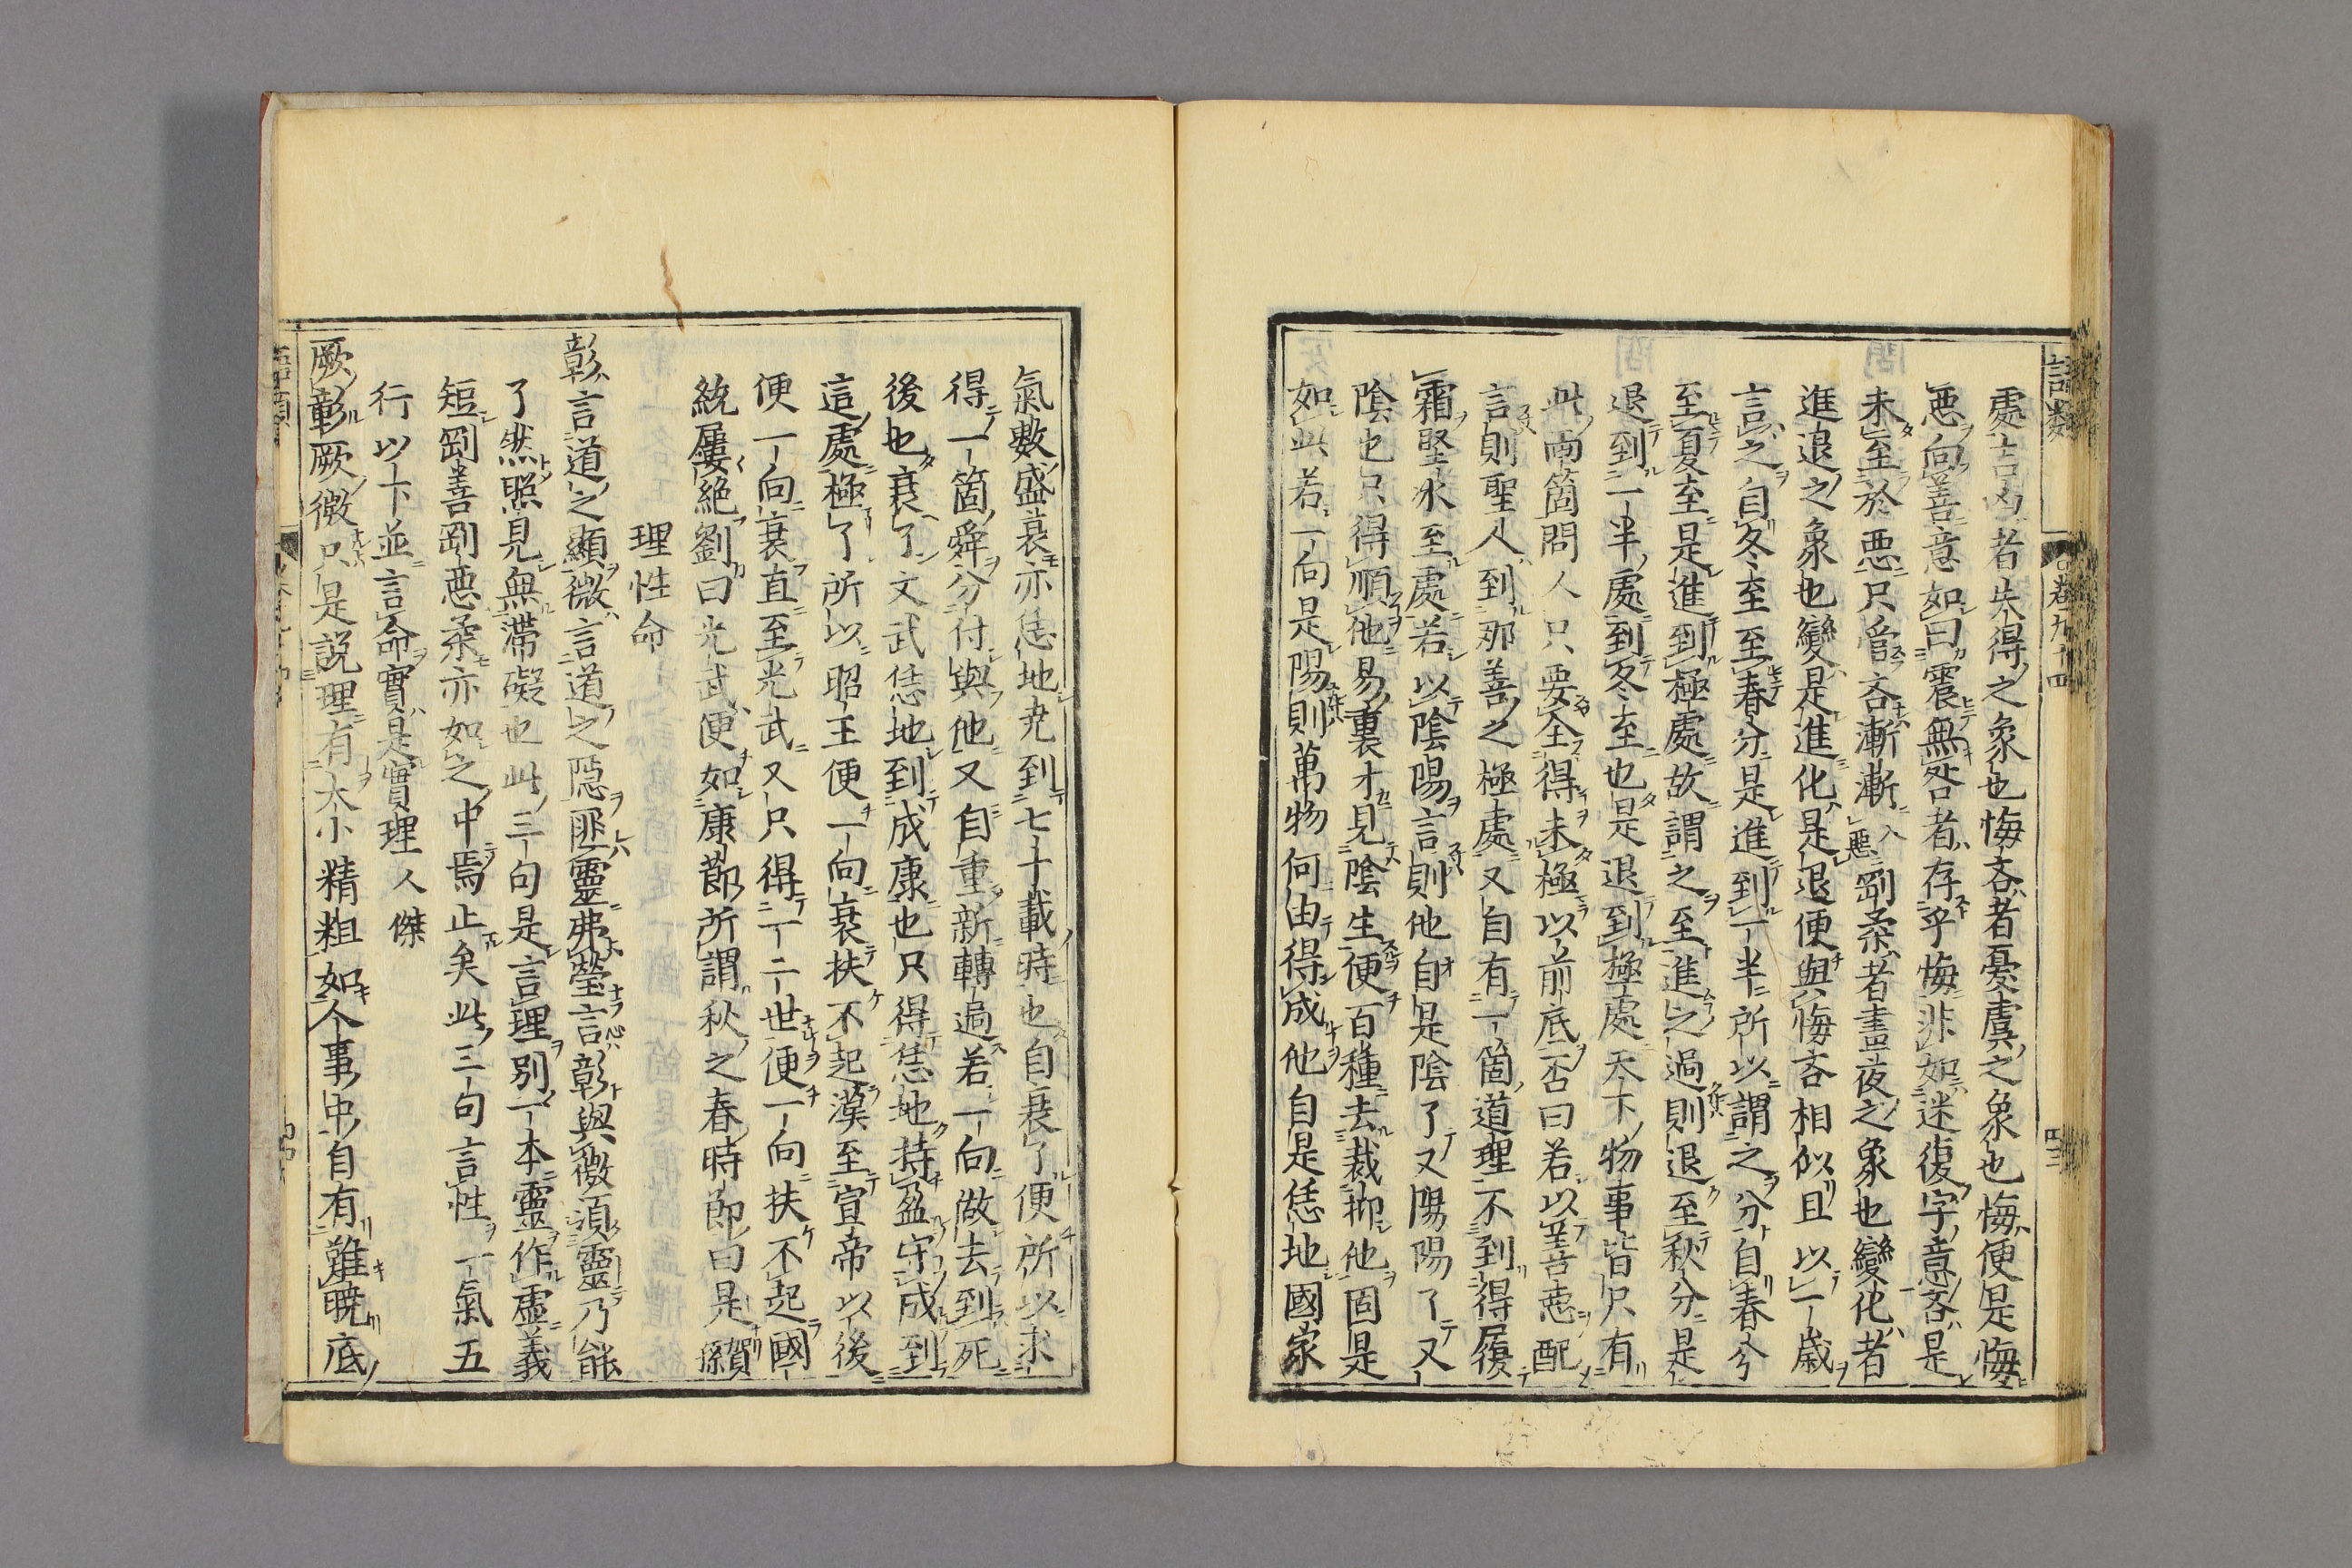 語類
卷九十四
四三
處吉凶者失得之象也悔吝者憂虞之象也悔便是悔
惡向善意如曰震無咎者存乎悔非如迷復字意吝是
未至於惡只管吝漸漸入惡剛柔者晝夜之象也變化者
進退之象也變是進化是退便與悔吝相似且以一歲
言之自冬至至春分是進到一半所以謂之分自春分
至夏至是進到極處故謂之至進之過則退至秋分是
退到一半處到冬至也是退到極處天下物事皆只有
此兩箇問人只要全得未極以前底否曰若以善惡配
言則聖人到那善之極處又自有一箇道理不到得履
霜堅氷至處若以陰陽言則他自是陰了又陽陽了又
陰也只得順他易裏才見陰生便百種去裁抑他固是
如此若一向是陽則萬物何由得成他自是恁地國家
氣數盛衰亦恁地尭到七十載時也自衰了便所以求
得一箇舜分付與他又自重新轉過若一向做去到死
後也衰了文武恁地到成康也只得恁地持盈守成到
這處極了所以昭王便一向衰扶不起漢至宣帝以後
便一向衰直至光武又只得一二世便一向扶不起國
統屢絶劉曰光武便如康節所謂秋之春時節曰是賀孫
理性命
彰言道之顯微言道之隠匪靈弗瑩言彰與微須靈乃能
了然照見無滯礙也此三句是言理別一本靈作虚義
短剛善剛惡柔亦如之中焉止矣此三句言性一氣五
行以下並言命實是實理人傑
厥彰厥微只是説理有大小精粗如人事中自有難曉底